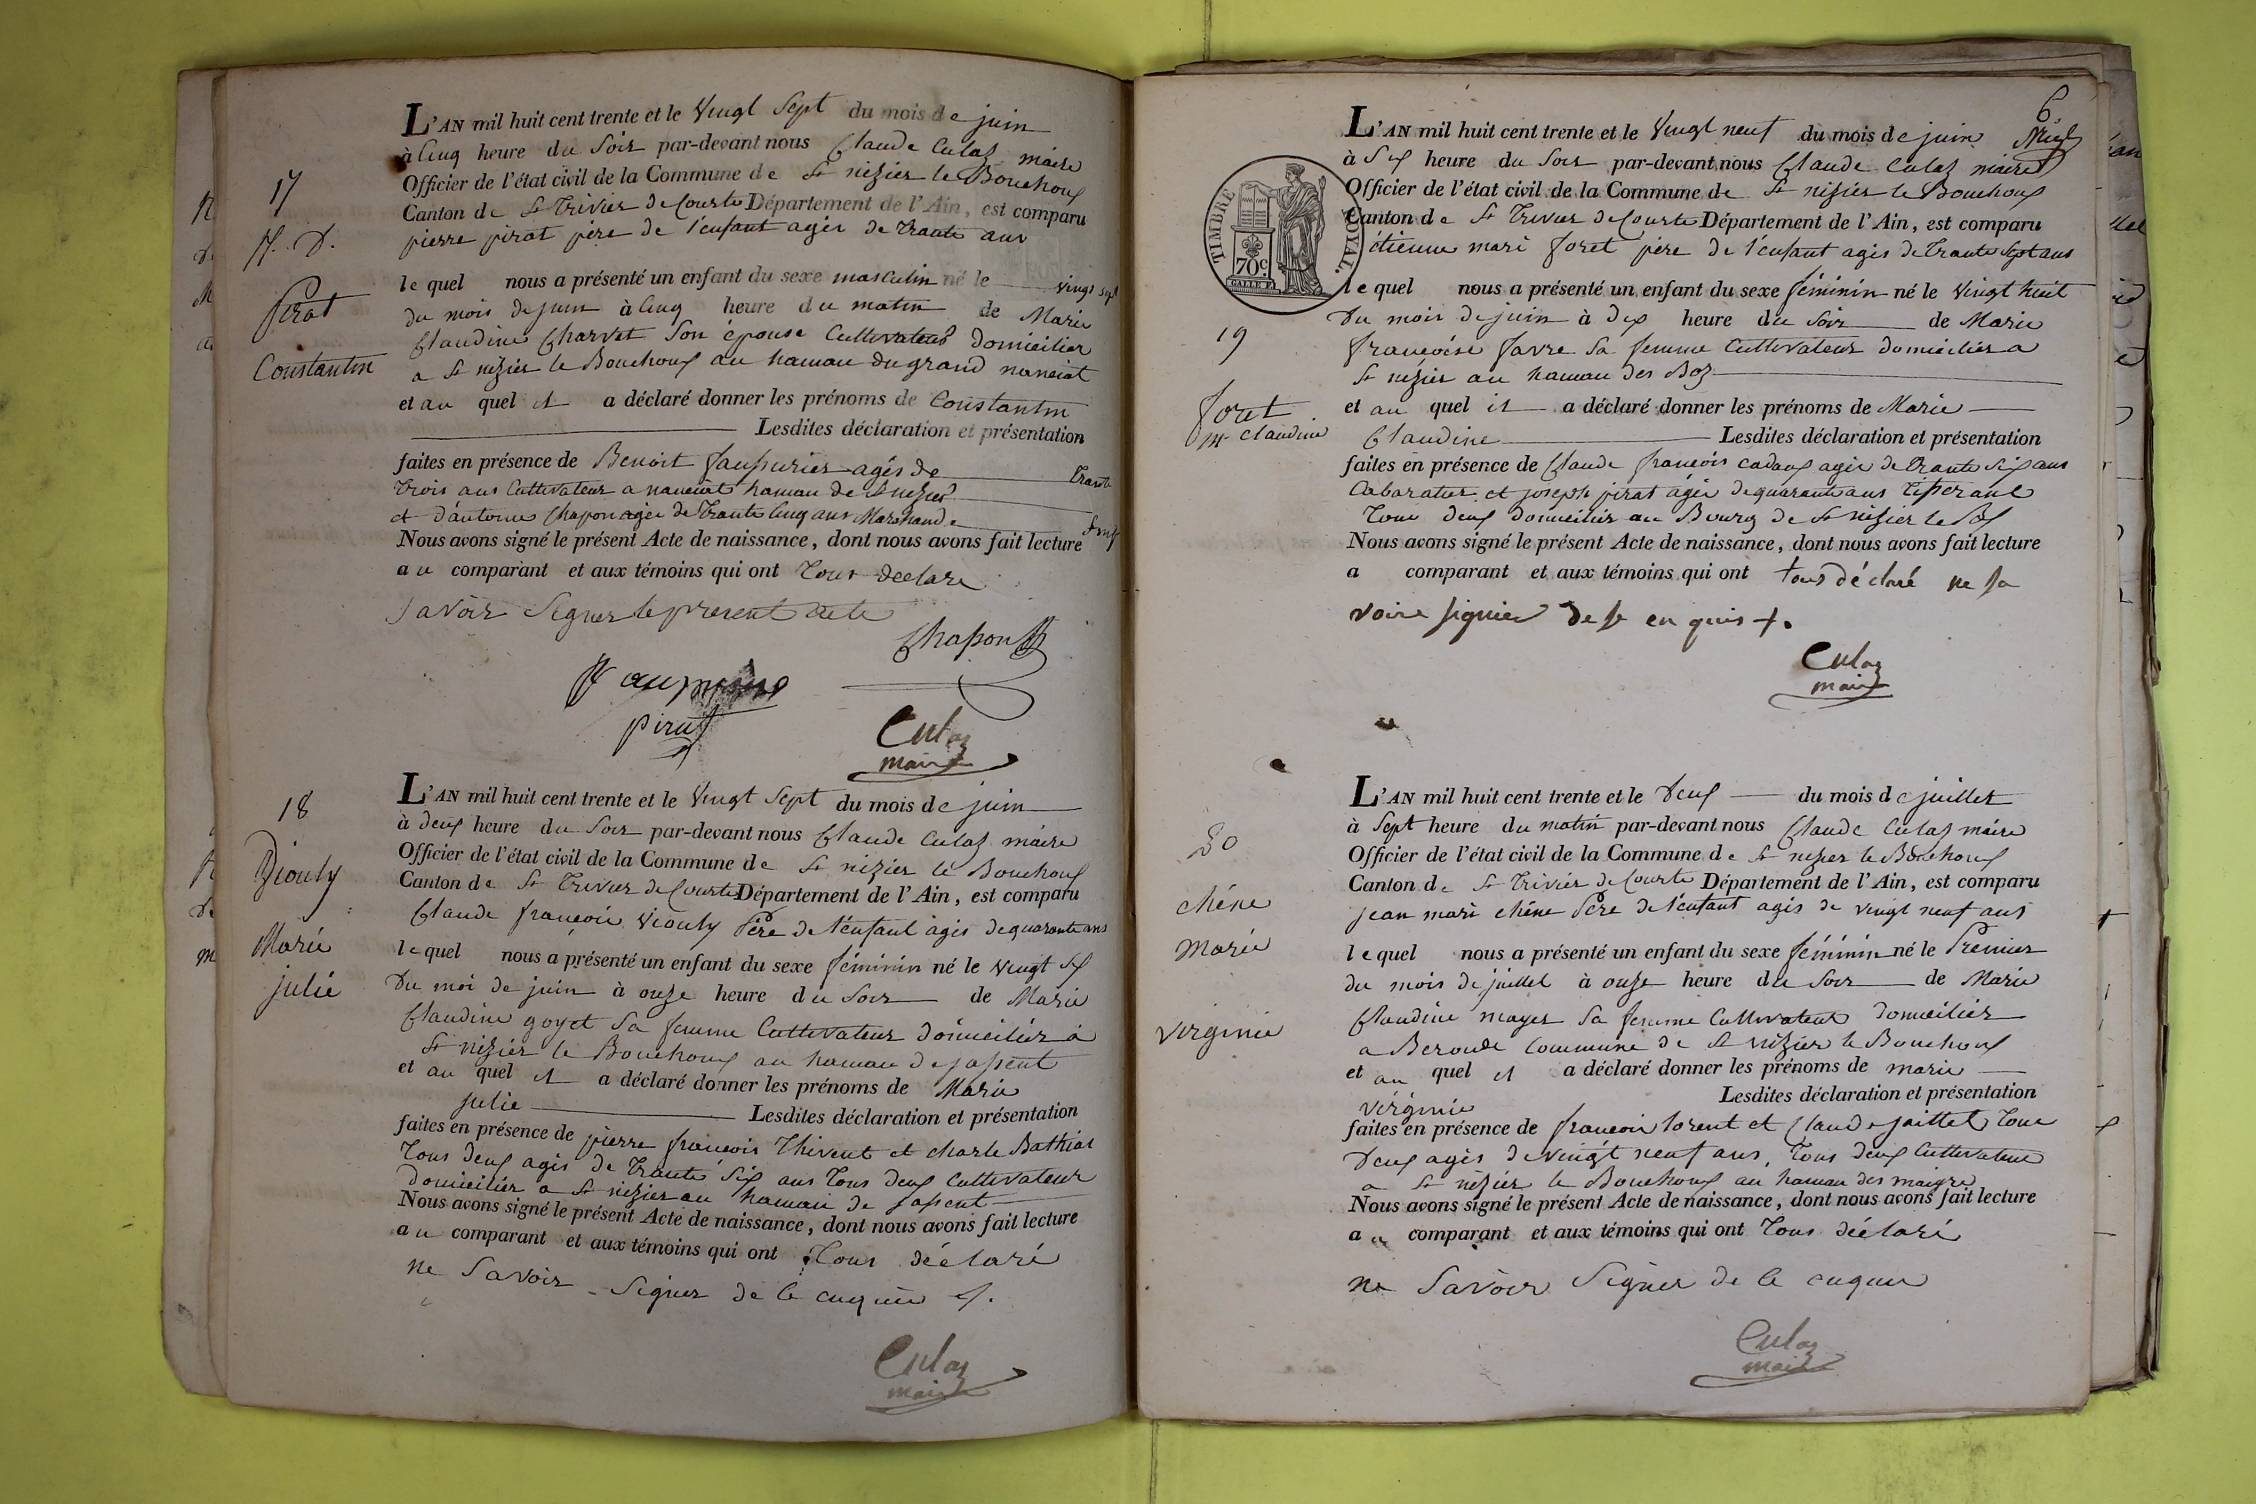 17
N. D.
Pirat
Constantin
L'AN mil huit cent trente et le Vingt Sept du mois de juin
à Cinq heure du Soir par-devant nous Claude Culaz maire
Officier de l'état civil de la Commune de St nizier le Bouchoux
Canton de St Trivier de Courte Département de l'Ain, est comparu
pierre pirat père de l'enfant agés de trante ans
le quel nous a présenté un enfant du sexe masculin né le vingt sept
du mois de juin à Cinq heure du matin de Marie
Claudine Charvet Son épouse Cultivateur domicilier
a St nizier le Bouchoux au hamau du grand nanciat
et au quel il a déclaré donner les prénoms de Constantin
Lesdites déclaration et présentation
faites en présence de Benoit agés de trante
trois ans Cultivateur a nanciat hamau de St nizier
et d'antoine Chapon agée de trante Cinq ans Marchand
Nous avons signé le présent Acte de naissance, dont nous avons fait lecture
au comparant et aux témoins qui ont tous déclare
Savoir Signer le present acte
Chapon
pirat
Culaz
maire
18
Viouly
Marie
julie
L'AN mil huit cent trente et le Vingt Sept du mois de juin
à deux heure du Soir par-devant nous Claude Culaz maire
Officier de l'état civil de la Commune de St nizier le Bouchoux
Canton de St Trivier de Courte Département de l'Ain, est comparu
Claude françois Viouly Père de l'enfant agés de quarante ans
le quel nous a présenté un enfant du sexe féminin né le vingt six
Du moi de juin à onze heure du Soir de Marie
Claudine goyet Sa femme Cultivateur domicilier à
St nizier le Bouchoux au hamau de japent
et au quel il a déclaré donner les prénoms de Marie
julie Lesdites déclaration et présentation
faites en présence de pierre françois Thivent et charle Bathiat
Tous deux agés de trante Six ans Tous deux Cultivateur
domicilier a St nizier au hamau de japent
Nous avons signé le présent Acte de naissance, dont nous avons fait lecture
au comparant et aux témoins qui ont Tous déclaré
ne Savoir Signer de ce enquie
Culaz
maire
6
TIMBRE ROYAL.
70c
19
foret
M. Claudine
L'AN mil huit cent trente et le Vingt neuf du mois de juin
à Six heure du Soir par-devant nous Claude Culaz maire
Officier de l'état civil de la Commune de St nizier le Bouchoux
Canton de St Trivier de Courte Département de l'Ain, est comparu
étienne mari foret père de l'enfant agés de Trante Sept ans
le quel nous a présenté un enfant du sexe féminin né le Vingt huit
Du mois de juin à dix heure du Soir de Marie
françoise favre Sa femme Cultivateur domicilier a
St nizier au hamau des Boz
et au quel il a déclaré donner les prénoms de Marie
Claudine Lesdites déclaration et présentation
faites en présence de Claude françois agés de trante Six ans
Cabaratier et joseph pirat agée de quarante ans Tisserant
Tous deux domicilier au Bourg de St nizier le
Nous avons signé le présent Acte de naissance, dont nous avons fait lecture
a comparant et aux témoins qui ont tous déclaré ne sa
voire signier de se en quis +.
Culaz
maire
20
chêne
Marie
virginie
L'AN mil huit cent trente et le Deux du mois de juillet
à Sept heure du matin par-devant nous Claude Culaz maire
Officier de l'état civil de la Commune de St nizier le Bouchoux
Canton de St Trivier de Courte Département de l'Ain, est comparu
jean mari chêne Père de l'enfant agés de vingt neuf ans
le quel nous a présenté un enfant du sexe féminin né le Premier
du mois de juillet à onze heure du Soir de Marie
Claudine mayer Sa femme Cultivateur domicilier
a Beroude Commune de St nizier le Bouchoux
et au quel il a déclaré donner les prénoms de marie
virginie Lesdites déclaration et présentation
faites en présence de françois lorent et Claude jaillet Tous
Deux agés de vingt neuf ans, Tous deux Cultivateur
a St nizier le Bouchoux au hamau des maigre
Nous avons signé le présent Acte de naissance, dont nous avons fait lecture
au comparant et aux témoins qui ont Tous déclaré
ne Savoir Signer de ce enquie
Culaz
maire